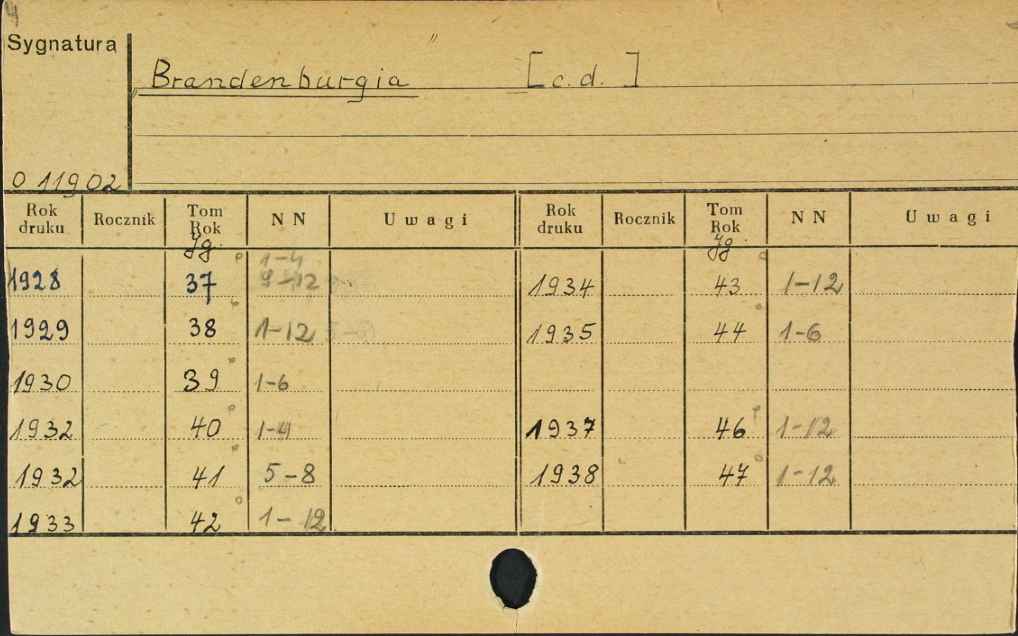 Sygnatura
Brandenburgia [c.d.]
O 11902
Rok druku Rocznik Tom Rok NN Uwagi Rok druku Rocznik Tom Rok NN Uwagi
Jg. Jg.
1-4
1928 37 9-12 1934 43 1-12
1929 38 1-12 1935 44 1-6
1930 39 1-6
1932 40 1-4 1937 46 1-12
1932 41 5-8 1938 47 1-12
1933 42 1-12